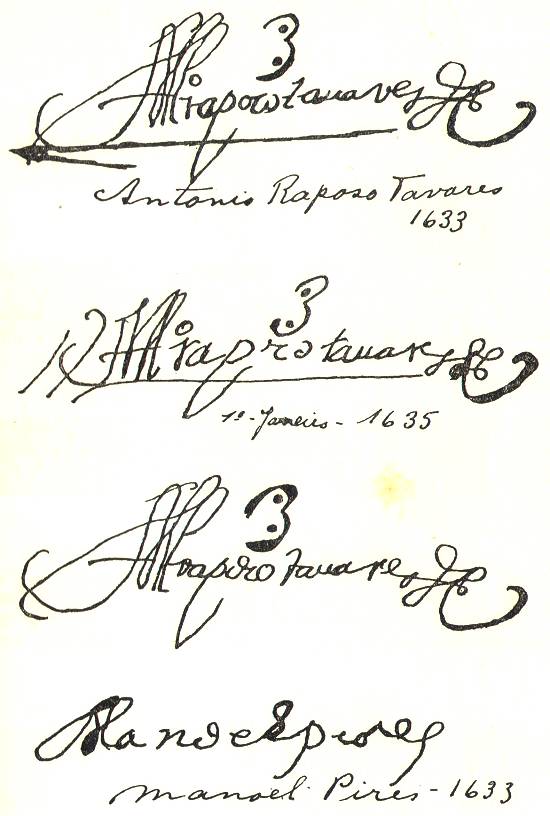 3
raposo tavares
Antonio Raposo Tavares
1633
3
rapozo tavares
1º - Janeiro - 1635
3
raposo tavares
Manoel pires
Manoel Pires - 1633